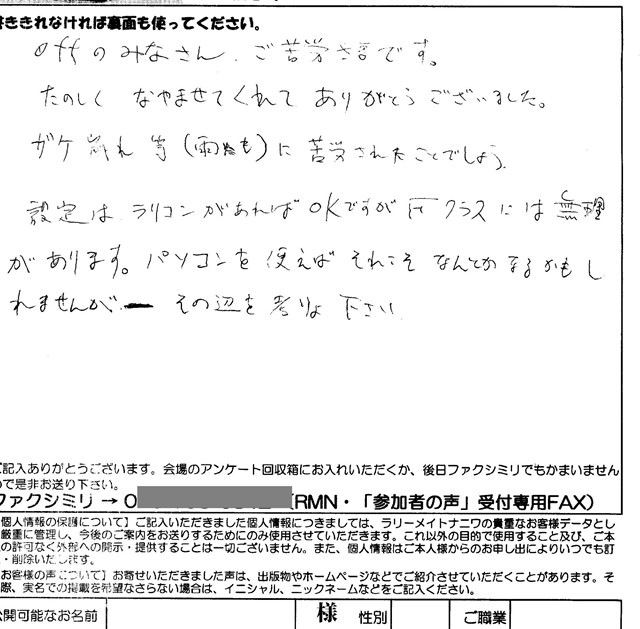 書ききれなければ裏面も使ってください。
Offのみなさん、ご苦労さまです。
たのしく なやませてくれて ありがとうございました。
ガケ崩れ等(雨も)に苦労されたことでしょう。
設定は ラリコンがあればOKですが Fクラスには無理
があります。パソコンを使えばそれこそなんとかなるかもし
れませんが、その辺を考りょ下さい
ご記入ありがとうございます。会場のアンケート回収箱にお入れいただくか、後日ファクシミリでもかまいません
ので是非お送り下さい。
ファクシミリ → 0 (RMN・「参加者の声」受付専用FAX)
個人情報の保護について】ご記入いただきました個人情報につきましては、ラリーメイトナニワの貴重なお客様データとし
厳重に管理し、今後のご案内をお送りするためにのみ使用させていただきます。これ以外の目的で使用すること及び、ご本
の許可なく外部への開示・提供することは一切ございません。また、個人情報はご本人様からのお申し出によりいつでも訂
・削除いたします。
お客様の声について】お寄せいただきました声は、出版物やホームページなどでご紹介させていただくことがあります。そ
際、実名での掲載を希望なさらない場合は、イニシャル、ニックネームなどをご記入ください。
公開可能なお名前 様 性別 ご職業